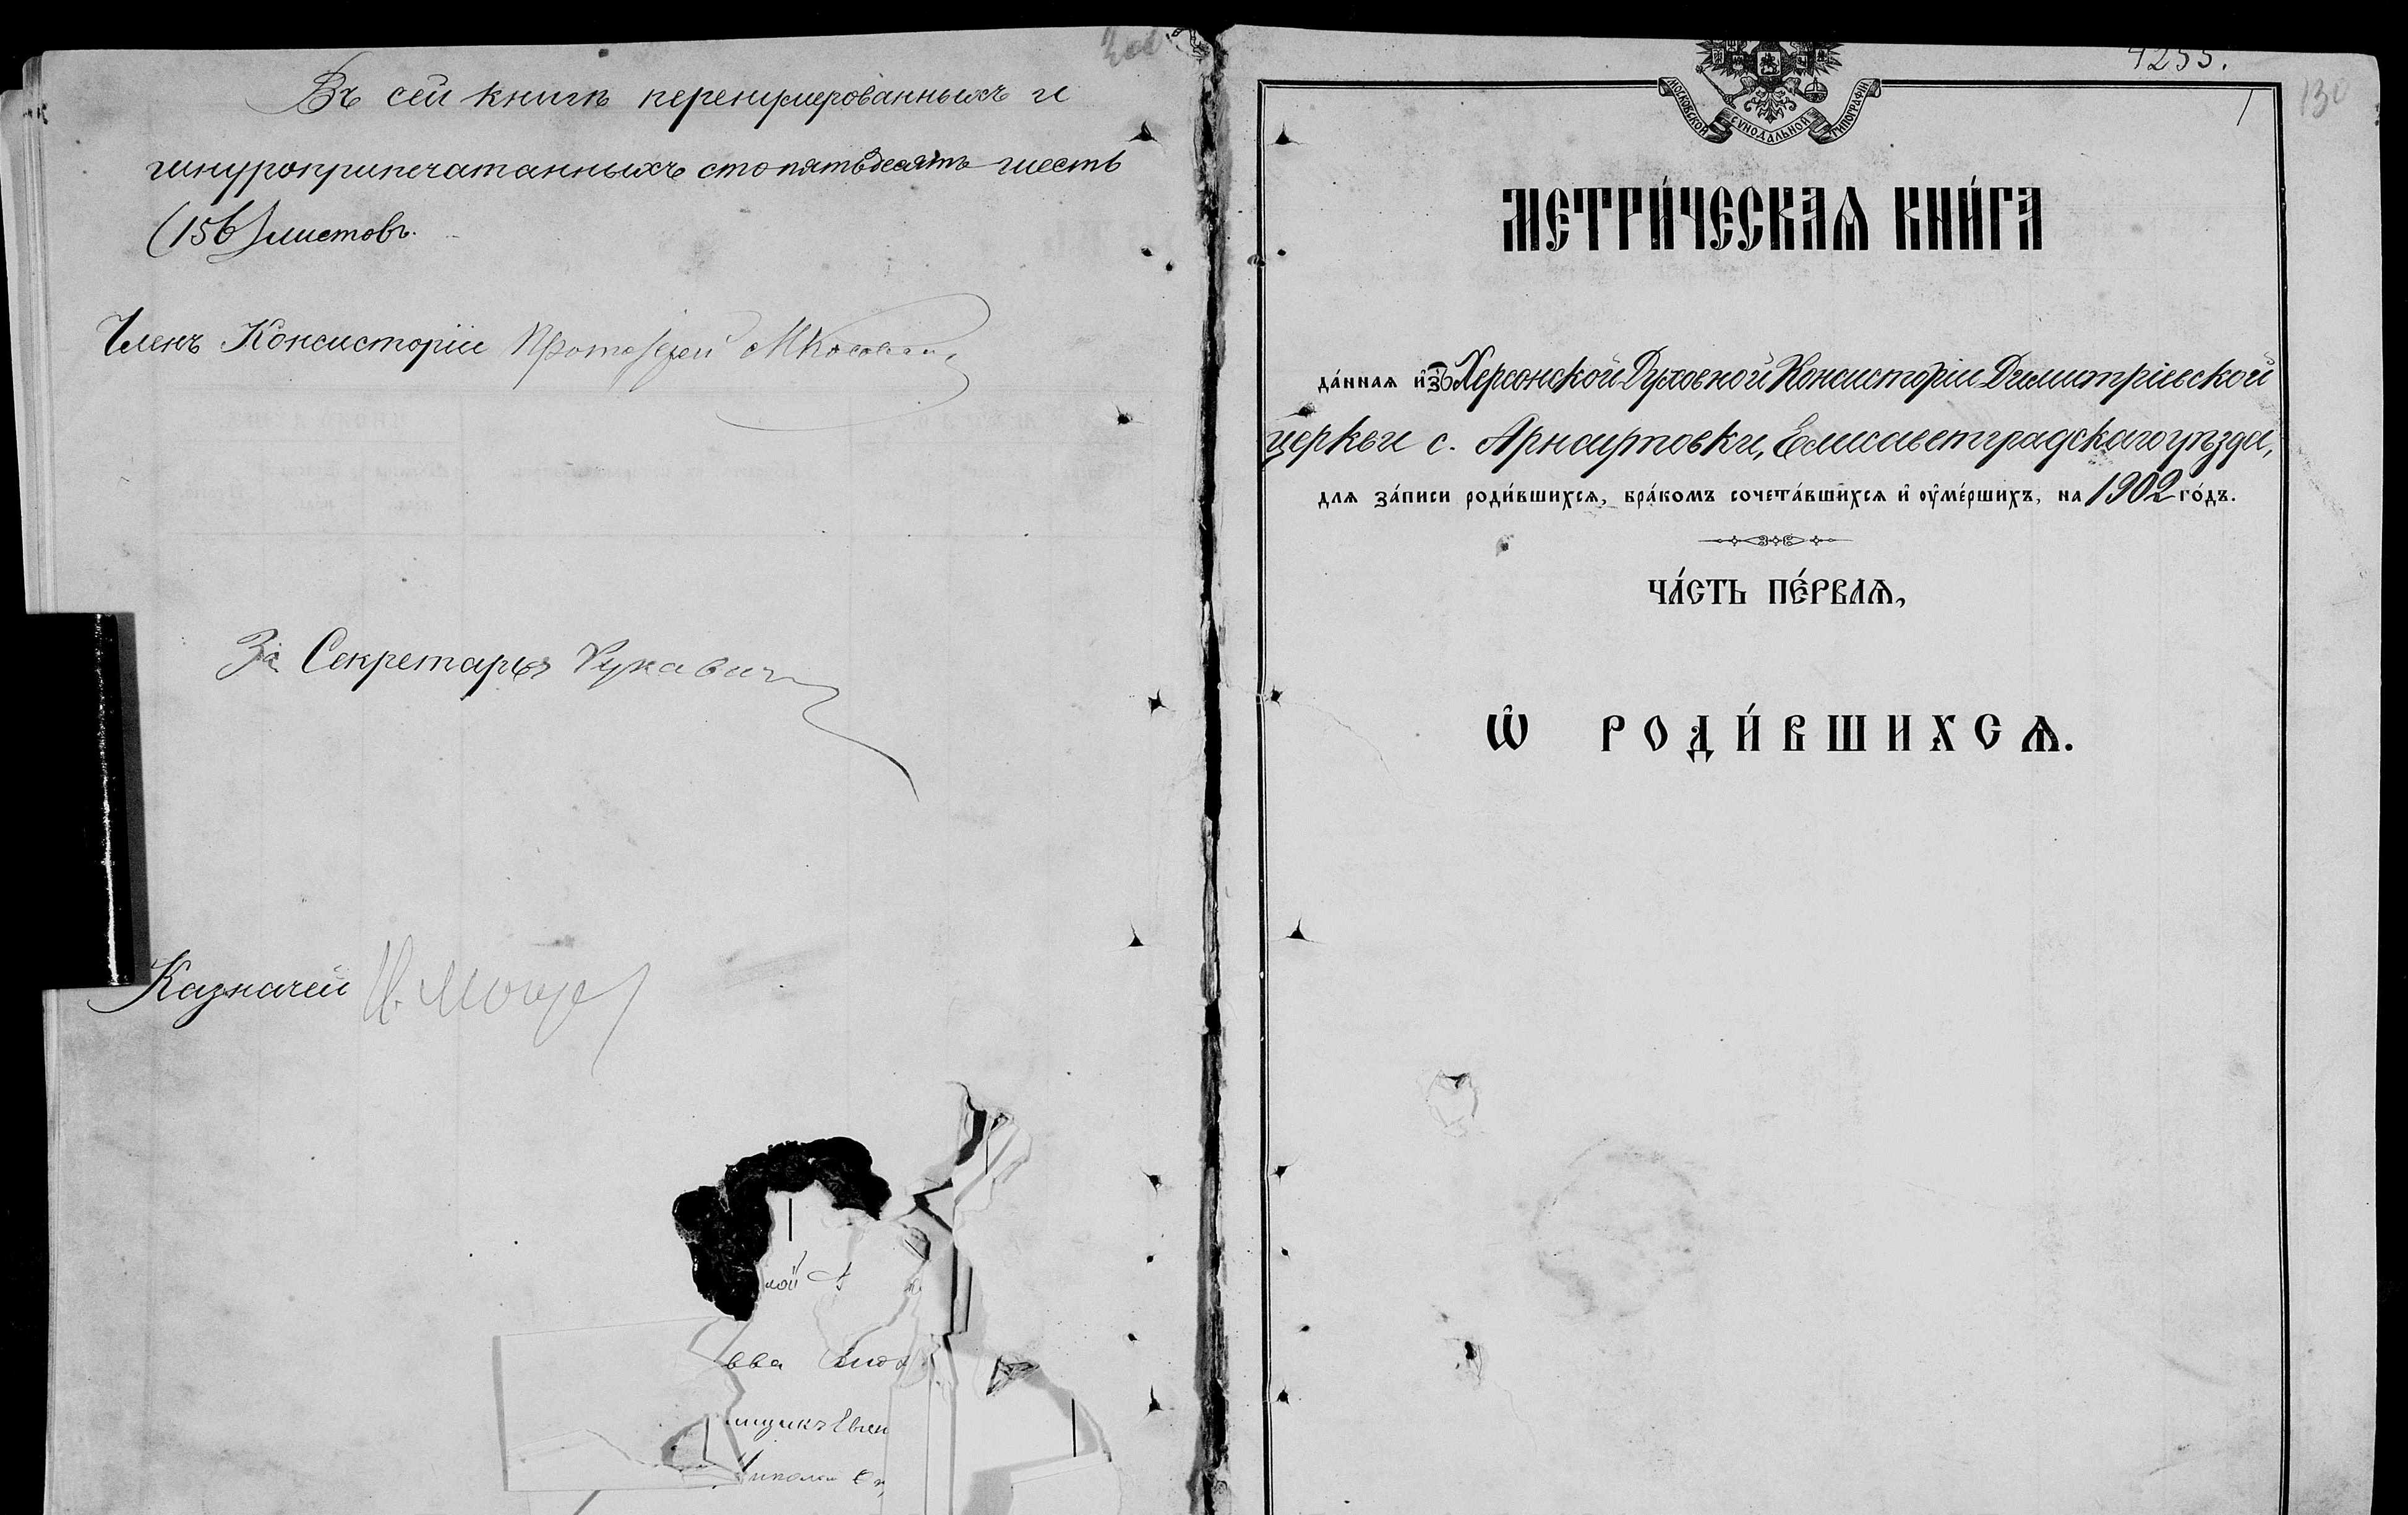 Въ сей книгѣ перенумерованныхъ и
шнуроприпечатанныхъ сто пятьдесятъ шесть
(156) листовъ.
Членъ Консисторіи Протоіерей
За Секретаря Рукавич
Казначей
мой
ьва
мщикъ Евген
Николай
4255.
1
130
МОСКОВСКОЙ СѴНОДАЛЬНОЙ ТИПОГРАФІИ
МЕТРИ́ЧЕСКАѦ КНИ́ГА
да́ннаѧ и҆зъ Херсонской Духовной Консисторіи Димитріевской
церкви с. Арнаутовки, Елисаветградскаго уѣзда,
длѧ за́писи роди́вшихсѧ, бра́комъ сочета́вшихсѧ и҆ ѹ҆ме́ршихъ, на 1902 го́дъ.
ЧА́СТЬ ПЕ́РВАѦ,
Ѡ҆ РОДИ́ВШИХСѦ.